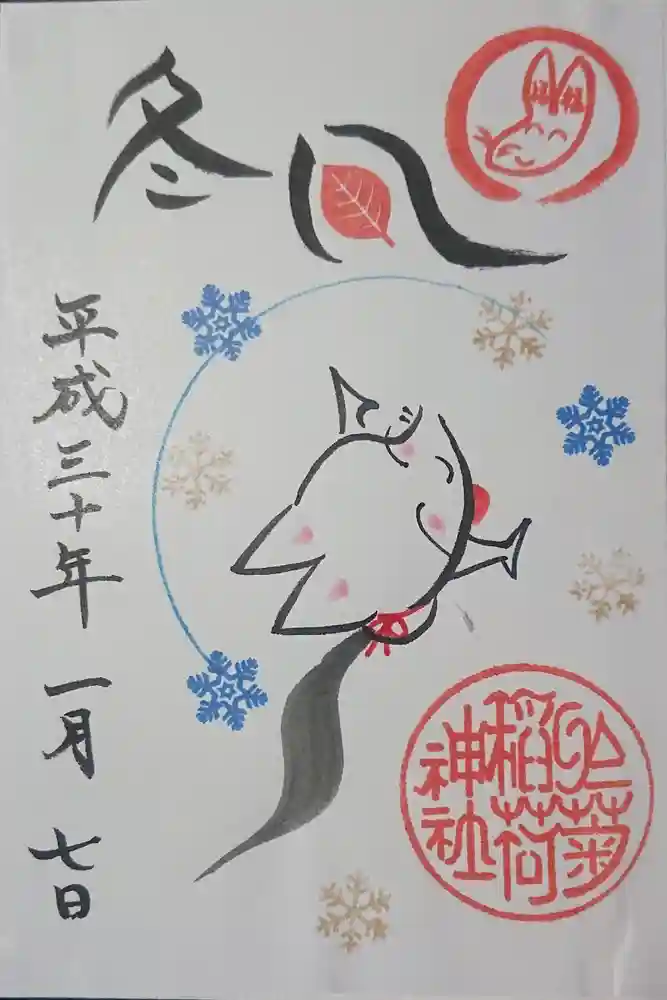 冬
平成三十年 一月 七日
於菊
稲荷
神社